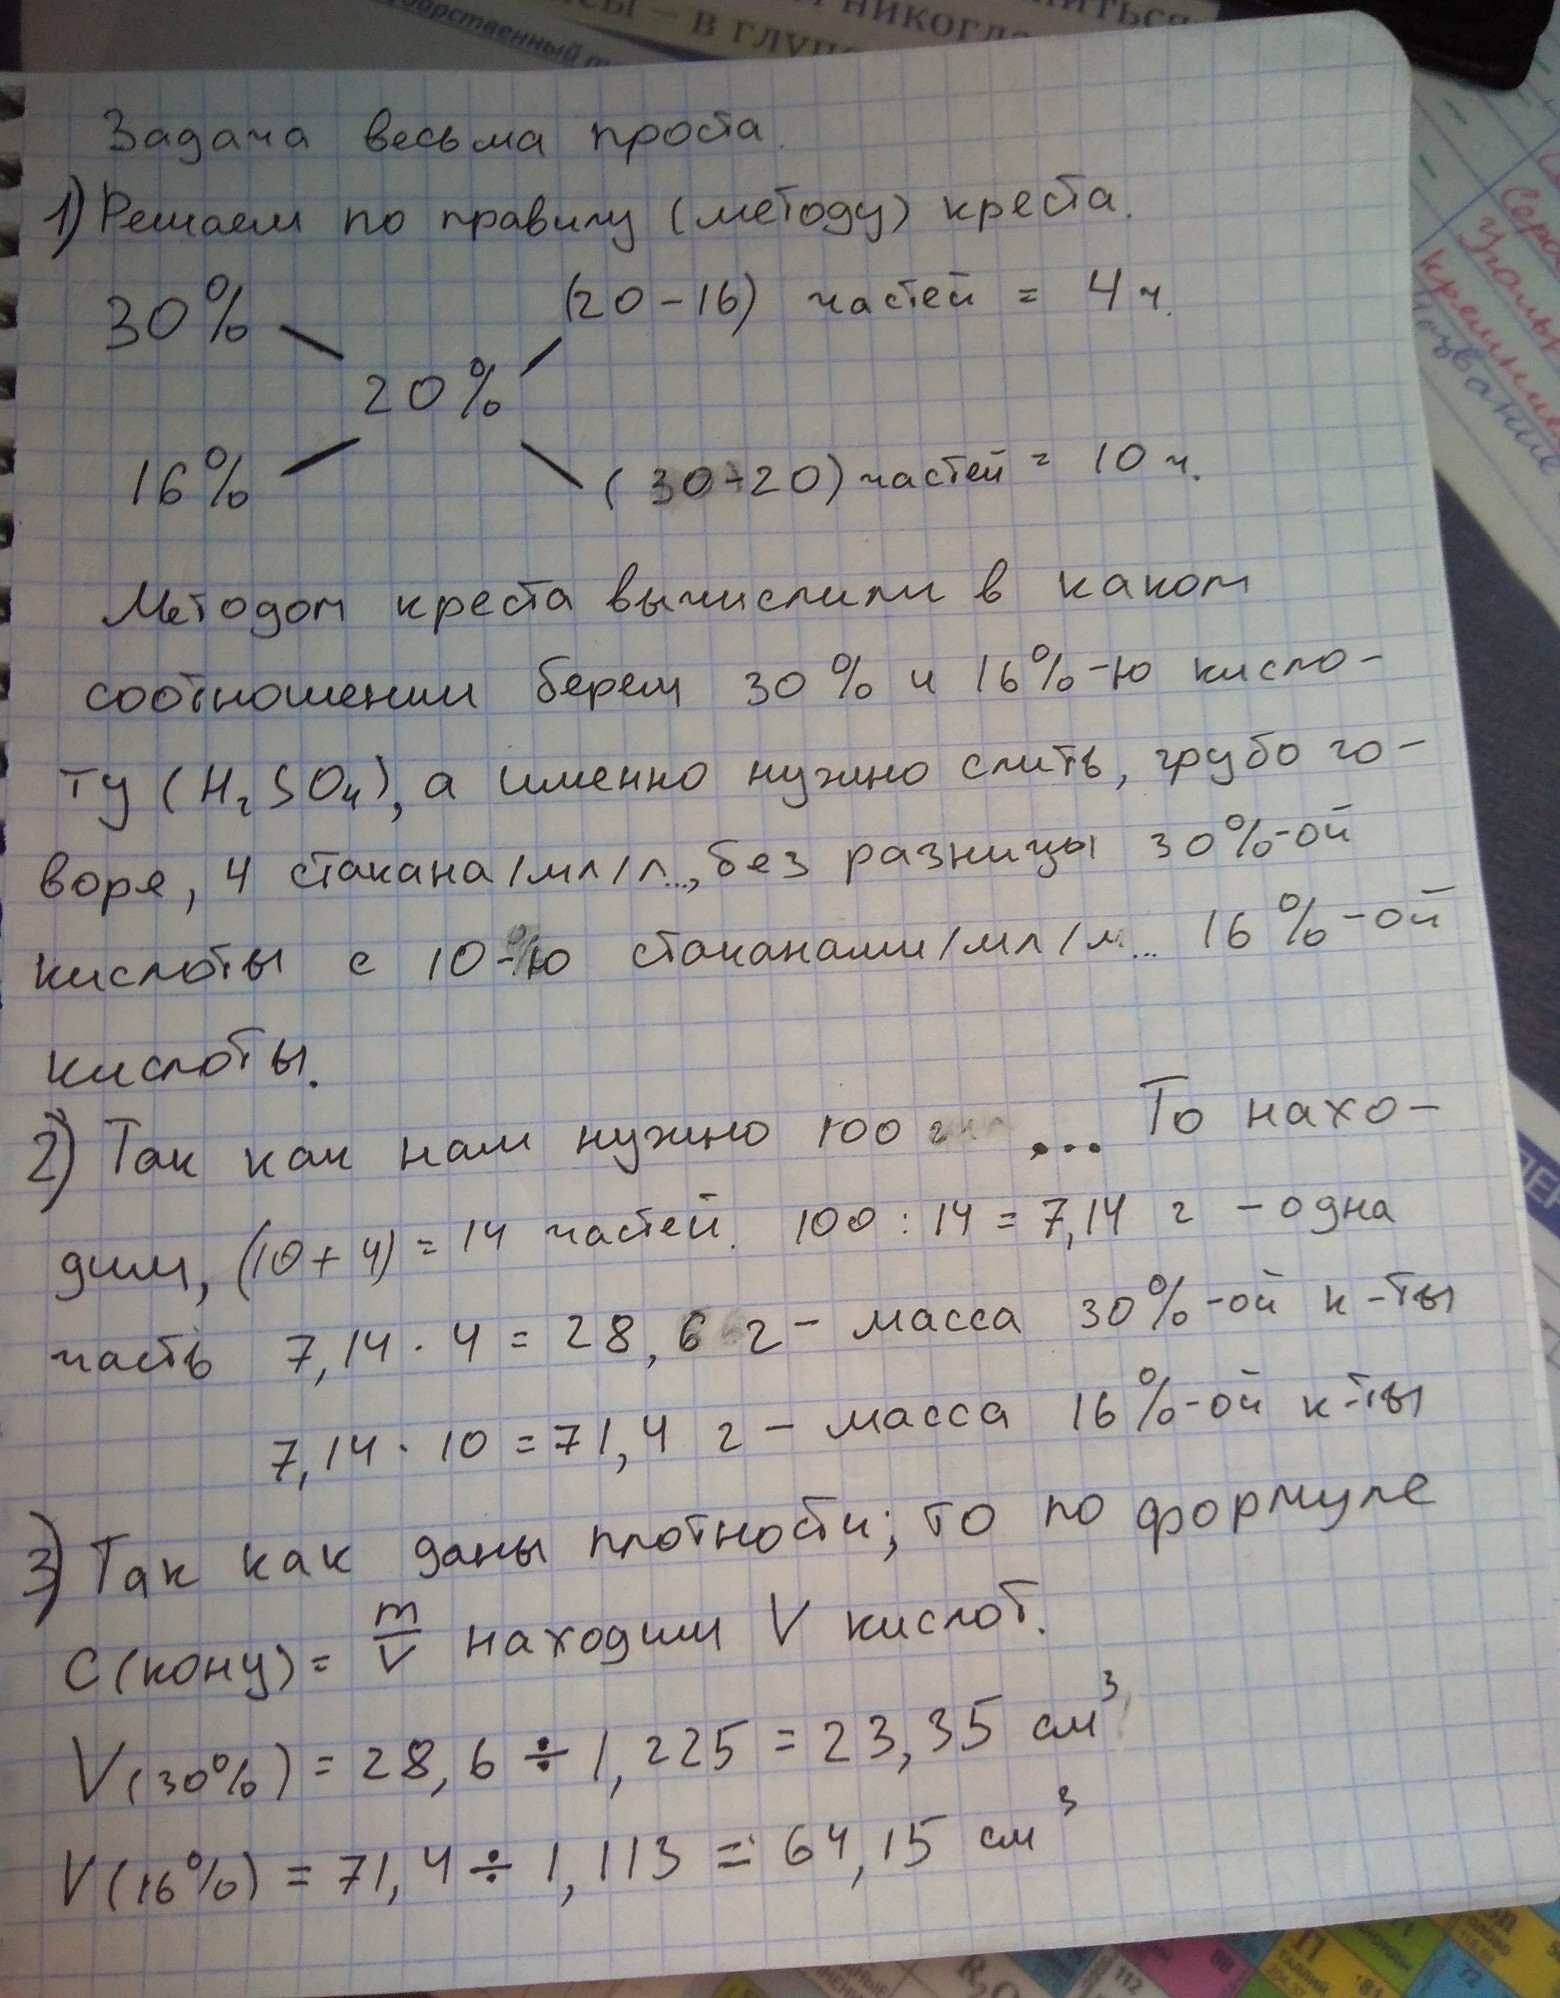 ы – в глуп
никогд
дарственный
Задача весьма проста.
1) Решаем по правилу (методу) креста.
30% (20-16) частей = 4 ч.
20%
16% (30-20) частей = 10 ч.
Методом креста вычислили в каком
соотношении берем 30% и 16%-ю кисло-
ту (H₂SO₄), а именно нужно слить, грубо го-
воря, 4 стакана/мл/л..., без разницы 30%-ой
кислоты с 10-ю стаканами/мл/л... 16%-ой
кислоты.
2) Так как нам нужно 100 г ... То нахо-
дим, (10+4) = 14 частей. 100 : 14 = 7,14 г - одна
часть 7,14 · 4 = 28,6 г - масса 30%-ой к-ты
7,14 · 10 = 71,4 г - масса 16%-ой к-ты
3) Так как даны плотности; то по формуле
C(кону) = m/V находим V кислот.
V(30%) = 28,6 ÷ 1,225 = 23,35 см³
V(16%) = 71,4 ÷ 1,113 = 64,15 см³
R₂O
112
88
Таллий
81
72